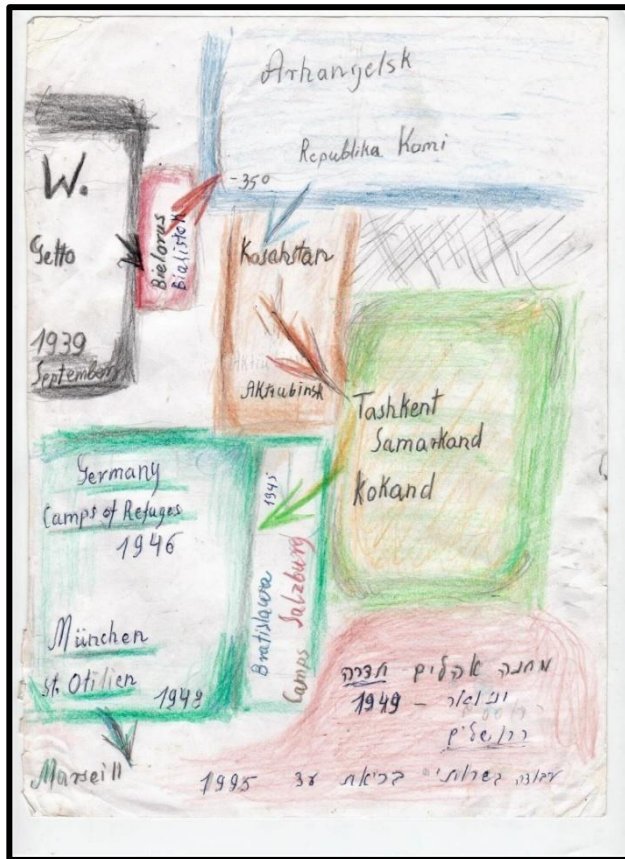 Arhangelsk
Republika Komi
-35º
W.
Getto
1939
September
Bielorus
Bialistok
Kasahstan
Aktiu
Aktiubinsk
Tashkent
Samarkand
Kokand
Germany
Camps of Refuges
1946
München
st. Otilien
1948
1945
Bratislawa
Salzburg
Camps
Marseill
מחנה אהלים חדרה
ינואר – 1949
ירושלים
עבודה בשרותי בריאת עד 1995